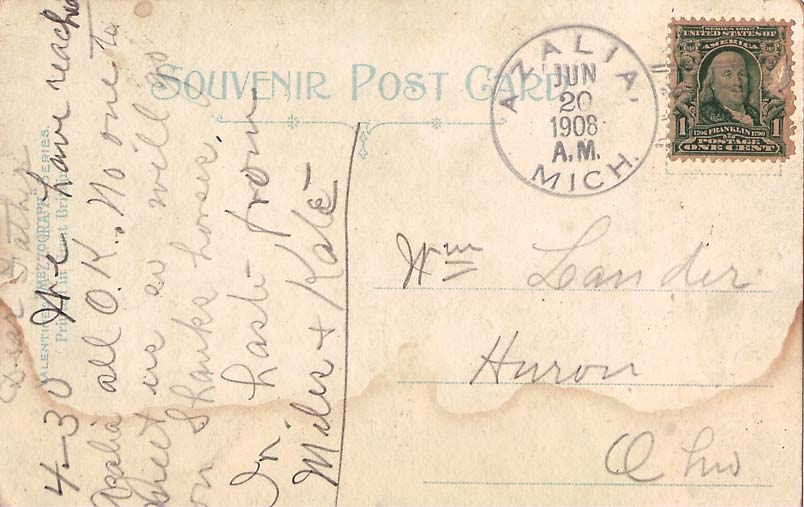 SOUVENIR POST CARD
AZALIA.
JUN
20
1908
A.M.
MICH.
SERIES 1902
UNITED STATES OF
AMERICA
1 1706 FRANKLIN 1790 1
POSTAGE
ONE CENT
VALENTINE'S "MEZZOGRAPH" SERIES.
Printed in Great Britain
Dear Father
4-30 We have reached
Azalia all O.K. No one to
meet us so will go
on Shanks horses,
In haste from
Miles & Kate
Wm Lander
Huron
Ohio